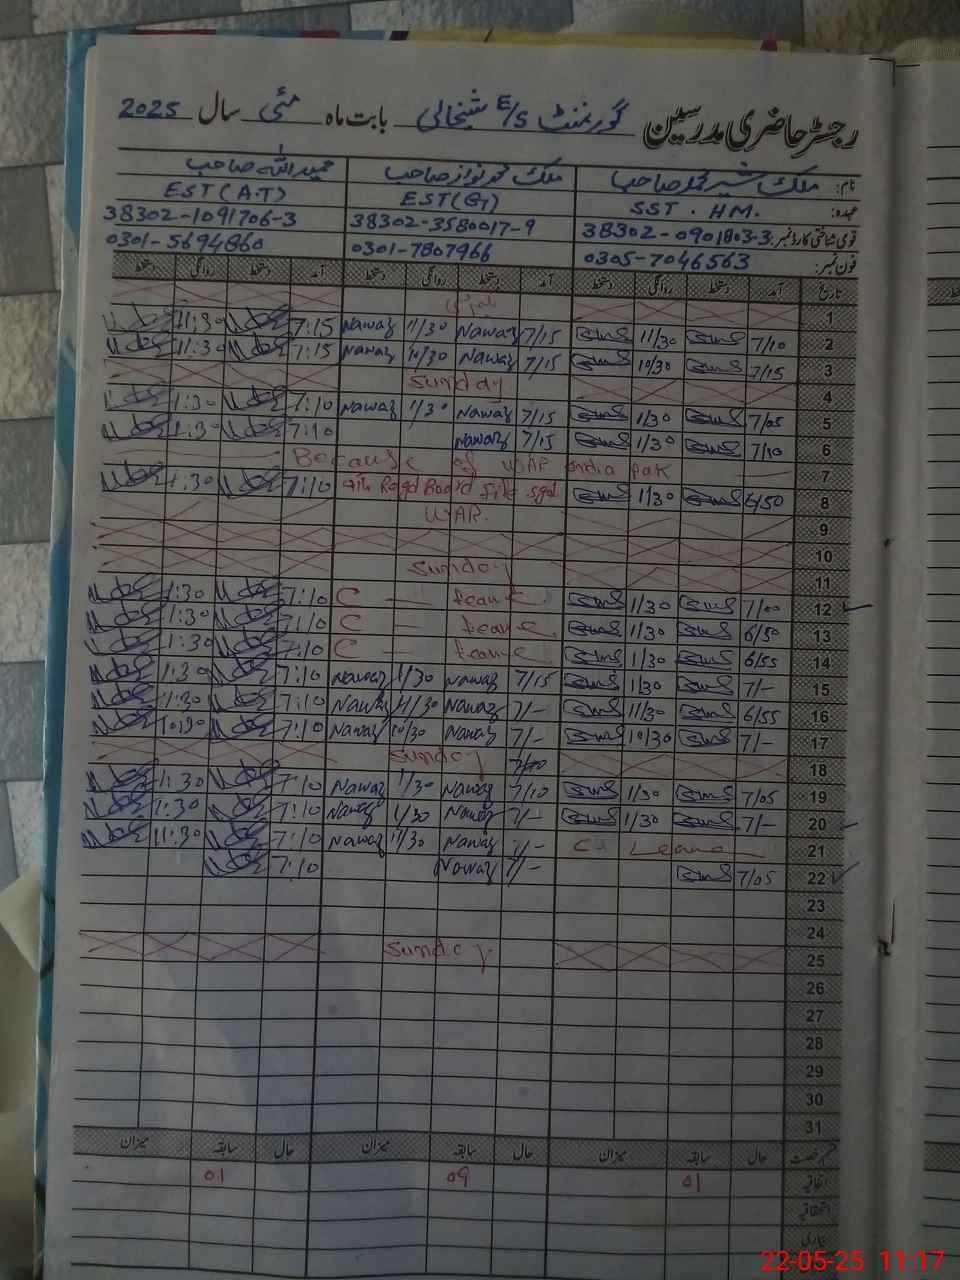 رجسٹر حاضری مدرسین گورنمنٹ E/S شیخالی بابت ماہ مئی سال 2025
نام: ملک شیر محمد صاحب ملک محمد نواز صاحب حمید اللہ صاحب
عہدہ: SST . HM. EST(G) EST(A.T)
قومی شناختی کارڈ نمبر: 38302-0901803-3 38302-3580017-9 38302-1091706-3
فون نمبر: 0305-7046563 0301-7807966 0301-5694860
تاریخ آمد دستخط روانگی دستخط آمد دستخط روانگی دستخط آمد دستخط روانگی دستخط
1
2 7/10 11/30 7/15 Nawaz 11/30 Nawaz 7:15 11:30
3 7/15 10/30 7/15 Nawaz 10/30 Nawaz 7:15 11:30
4 Sunday
5 7/05 1/30 7/15 Nawaz 1/30 Nawaz 7:10 1:30
6 7/10 1/30 7/15 Nawaz 7:10 1:30
7 Because of WAR india pak
8 6/50 1/30 9th Regd Board file sgd 7:10 1:30
9 WAR.
10
11 Sunday
12 7/00 1/30 C — Leave 7:10 1:30
13 6/50 1/30 C — Leave 7:10 1:30
14 6/55 1/30 C — Leave 7:10 1:30
15 7/- 1/30 7/15 Nawaz 1/30 Nawaz 7:10 1:30
16 6/55 11/30 7/- Nawaz 11/30 Nawaz 7:10 1:30
17 7/- 10/30 7/- Nawaz 10/30 Nawaz 7:10 10:30
18 Sunday
19 7/05 1/30 7/10 Nawaz 1/30 Nawaz 7:10 1:30
20 7/- 1/30 7/- Nawaz 1/30 Nawaz 7:10 1:30
21 C Leave 7/- Nawaz 11/30 Nawaz 7:10 11:30
22 7/05 7/- Nawaz 7:10
23
24
25 Sunday
26
27
28
29
30
31
قسم رخصت حال سابقہ میزان حال سابقہ میزان حال سابقہ میزان
اتفاقیہ 01 09 01
استحقاقیہ
بیماری
22-05-25 11:17